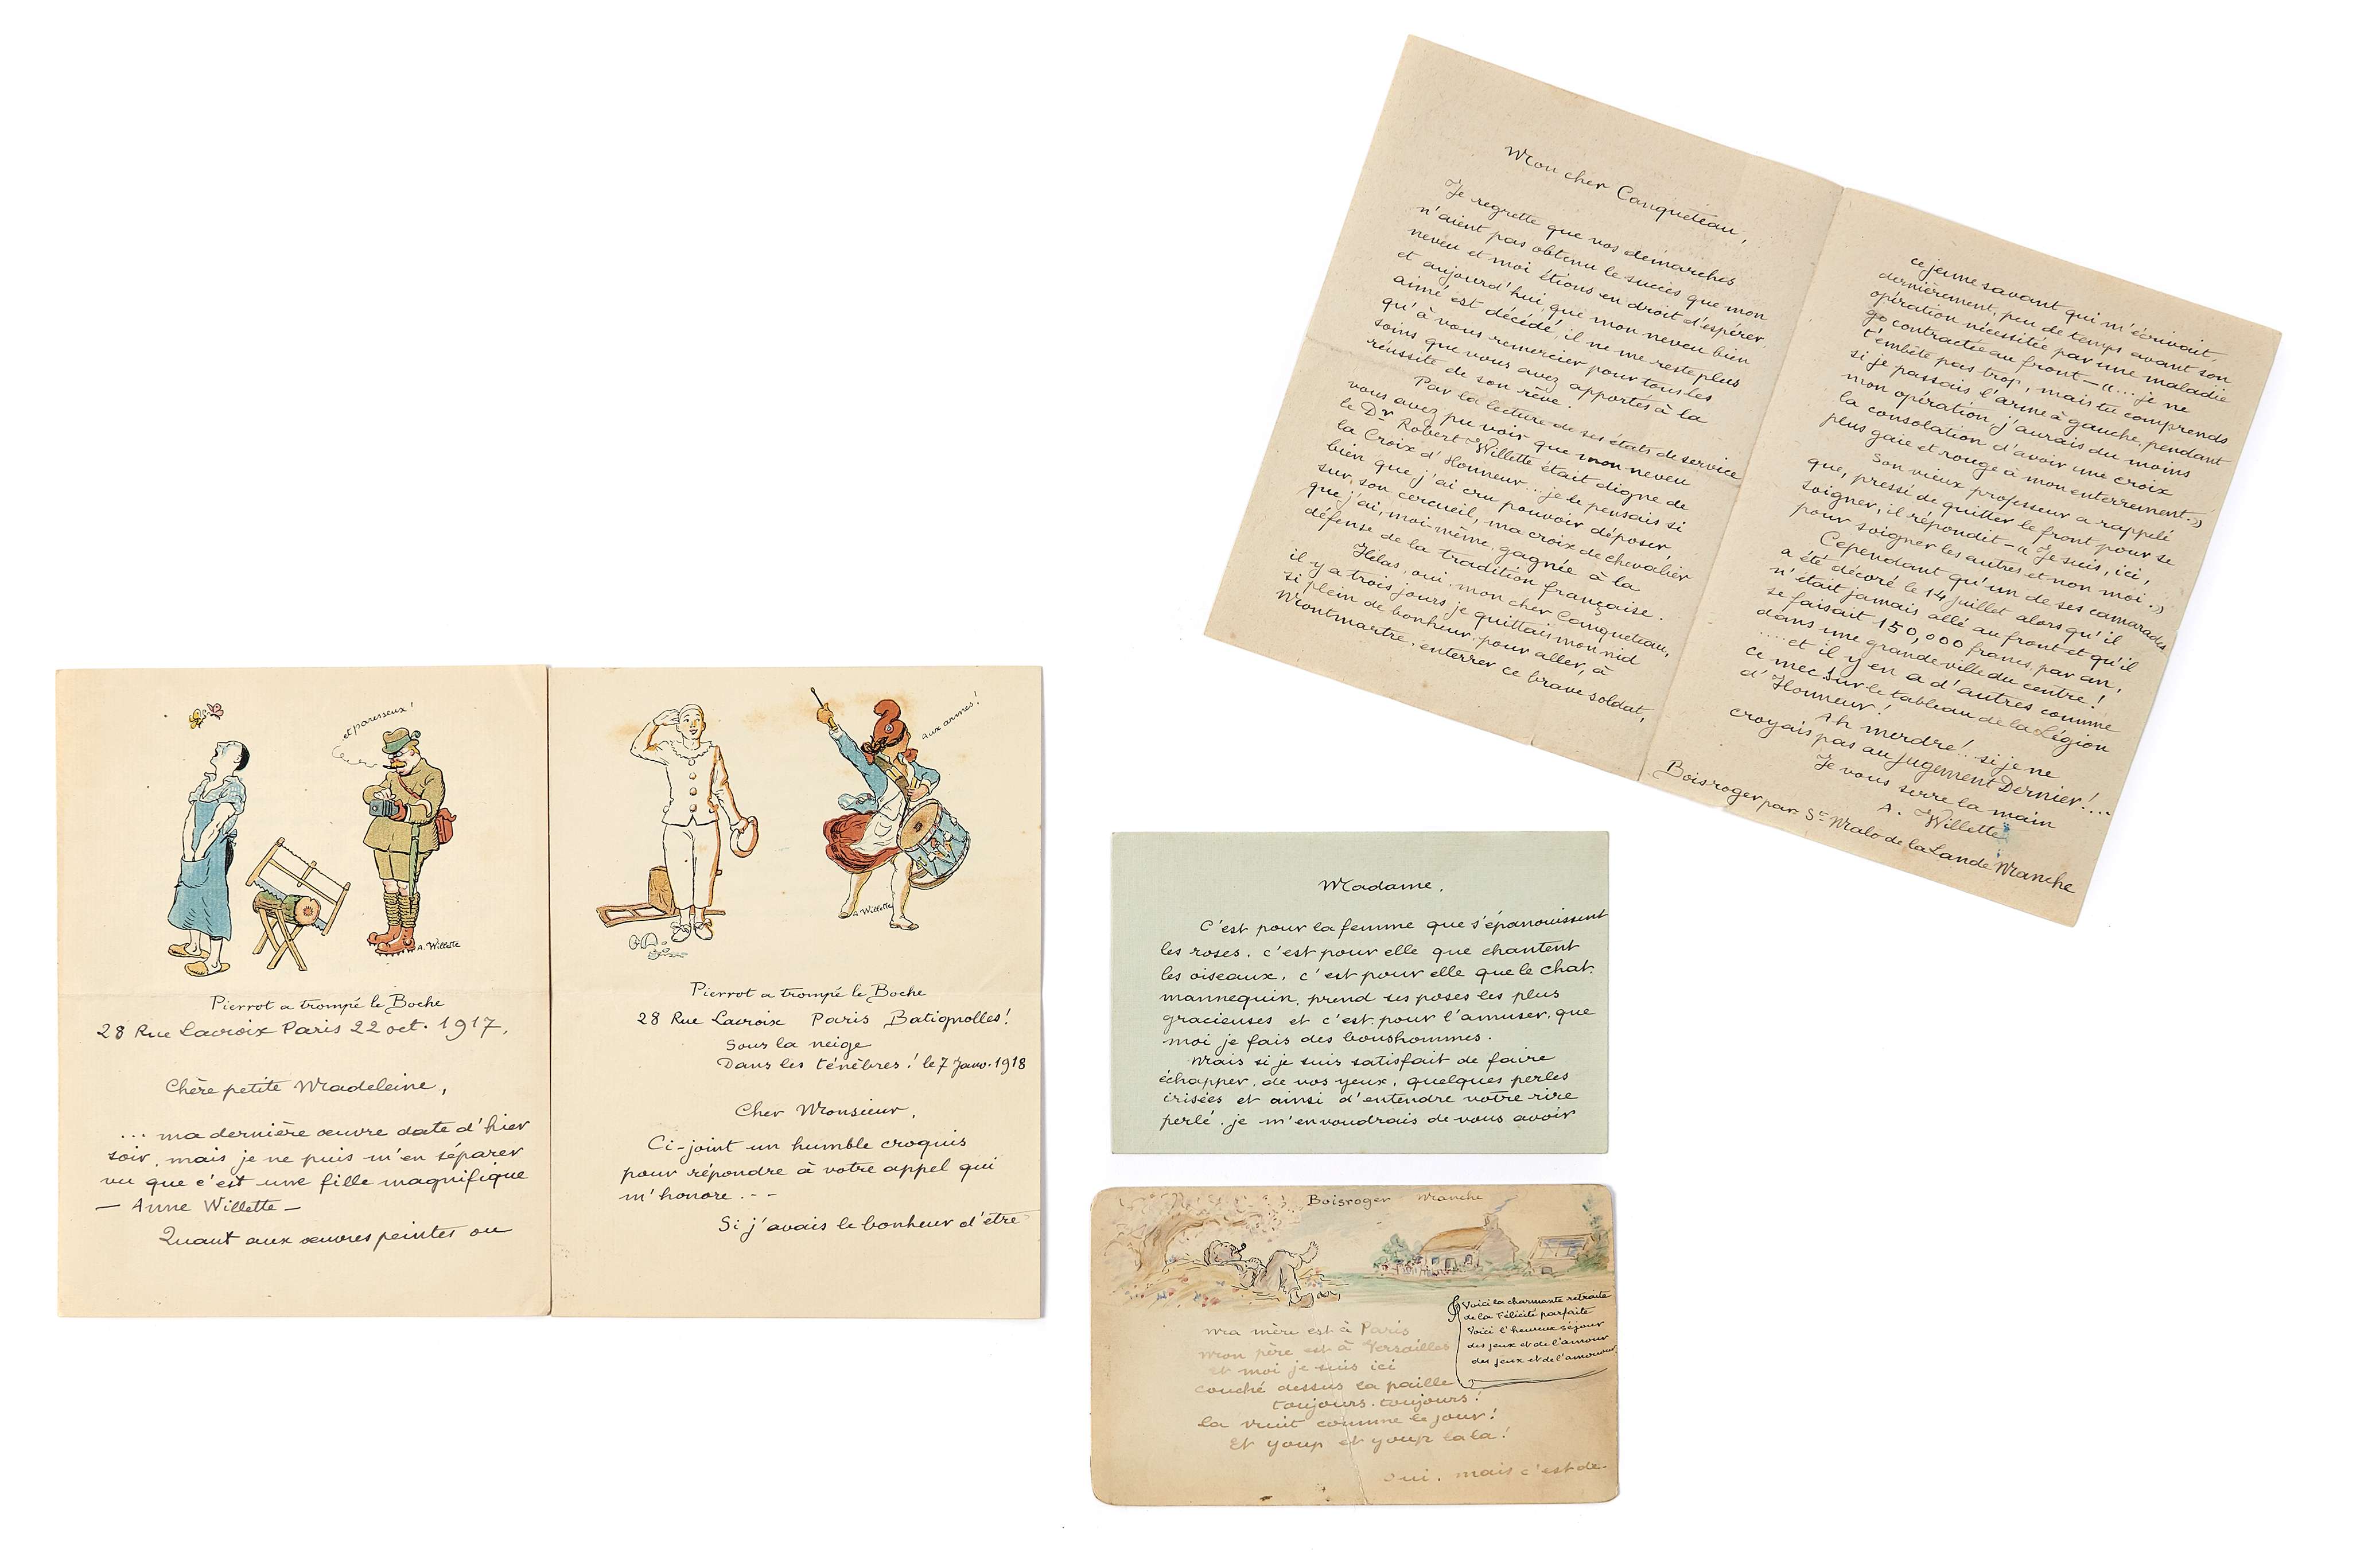 et paresseux !
A. Willette
Pierrot a trompé le Boche
28 Rue Lacroix Paris 22 oct. 1917.
Chère petite Madeleine,
... ma dernière œuvre date d'hier
soir, mais je ne puis m'en séparer
vu que c'est une fille magnifique
— Anne Willette —
Quant aux œuvres peintes ou
Aux armes !
A. Willette
Pierrot a trompé le Boche
28 Rue Lacroix Paris Batignolles !
Sous la neige
Dans les ténèbres ! le 7 Janv. 1918
Cher Monsieur,
Ci-joint un humble croquis
pour répondre à votre appel qui
m'honore . - -
Si j'avais le bonheur d'être
Mon cher Canqueteau,
Je regrette que vos démarches
n'aient pas obtenu le succès que mon
neveu et moi étions en droit d'espérer
et aujourd'hui, que mon neveu bien
aimé est décédé, il ne me reste plus
qu'à vous remercier pour tous les
soins que vous avez apportés à la
réussite de son rêve.
Par la lecture de ses états de service
vous avez pu voir que mon neveu
le Dr Robert Willette était digne de
la Croix d'Honneur... je le pensais si
bien que j'ai cru pouvoir déposer,
sur son cercueil, ma croix de chevalier
que j'ai, moi-même, gagnée à la
défense de la tradition française.
Hélas, oui, mon cher Canqueteau,
il y a trois jours je quittais mon nid
si plein de bonheur, pour aller, à
Montmartre, enterrer ce brave soldat,
ce jeune savant qui m'écrivait,
dernièrement, peu de temps avant son
opération nécessitée par une maladie
contractée au front — "... je ne
t'embête pas trop, mais tu comprends
si je passais l'arme à gauche, pendant
mon opération, j'aurais du moins
la consolation d'avoir une croix
plus gaie et rouge à mon enterrement."
Son vieux professeur a rappelé
que, pressé de quitter le front pour se
soigner, il répondit — "Je suis, ici,
pour soigner les autres et non moi."
Cependant qu'un de ses camarades
a été décoré le 14 juillet alors qu'il
n'était jamais allé au front et qu'il
se faisait 150,000 francs, par an,
dans une grande ville du centre !
.... et il y en a d'autres comme
ce mec sur le tableau de la Légion
d'Honneur !
Ah merdre !... si je ne
croyais pas au Jugement Dernier !...
Je vous serre la main
A. Willette
Boisroger par St Malo de la Lande Manche
Madame,
C'est pour la femme que s'épanouissent
les roses, c'est pour elle que chantent
les oiseaux, c'est pour elle que le chat.
mannequin, prend ses poses les plus
gracieuses et c'est, pour l'amuser, que
moi je fais des bonshommes.
Mais si je suis satisfait de faire
échapper, de vos yeux, quelques perles
irisées et ainsi d'entendre votre rire
perlé, je m'en voudrais de vous avoir
Boisroger Manche
Voici la charmante retraite
de la Félicité parfaite
Voici l'heureux séjour
des jeux et de l'amour
des jeux et de l'amouour.
Ma mère est à Paris
Mon père est à Versailles
Et moi je suis ici
couché dessus la paille
toujours, toujours !
la nuit comme le jour !
Et youp et youp lala !
Oui, mais c'est de